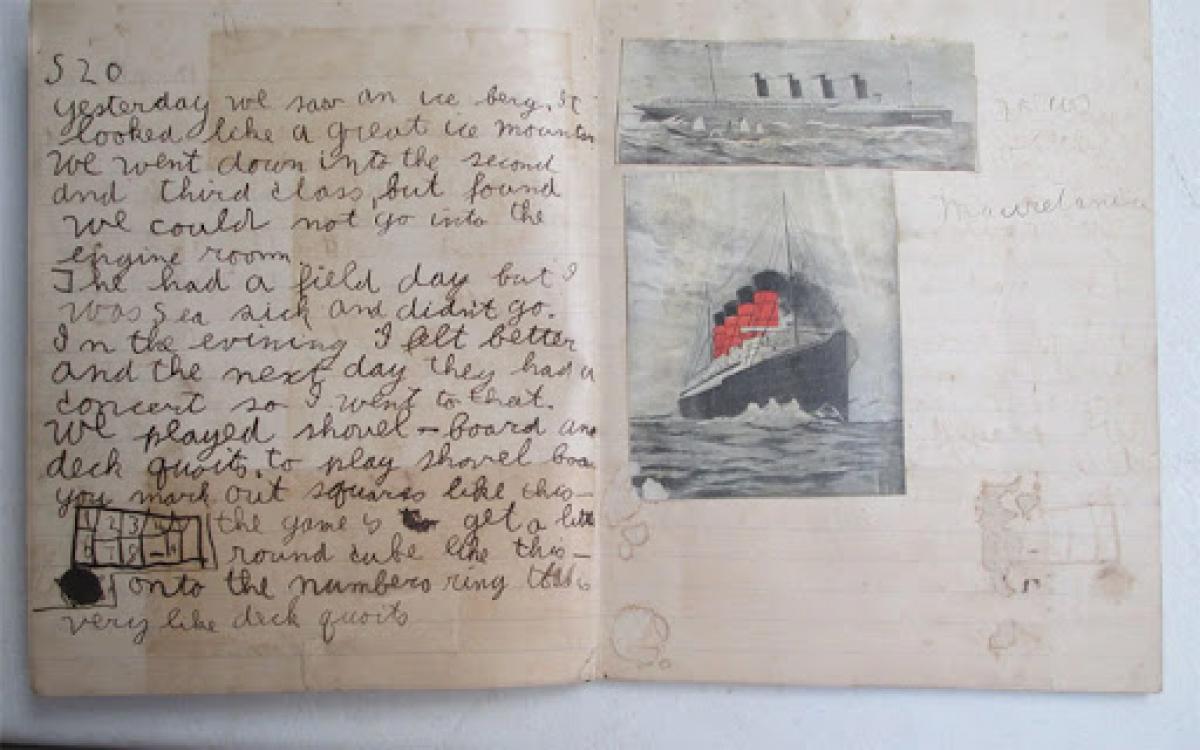 S 20
yesterday we saw an ice berg. It
looked like a great ice mountin
We went down into the second
and third class, but found
we could not go into the
engine room.
The had a field day but I
was sea sick and didn't go.
In the evining I felt better
and the next day they had a
concert so I went to that.
We played shovel-board and
deck quoits. to play shovel boa
you mark out squares like this-
1 2 3
the game is to get a litt
6 7 8
round cube like this-
onto the numbers ring
very like deck quoits
Mauretania